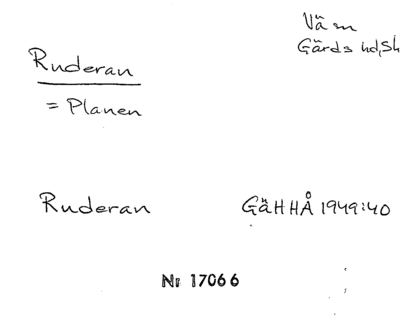 Väm
Gärds hd, Sk
Ruderan
= Planen
Ruderan GäHHÅ 1949:40
Nr 17066